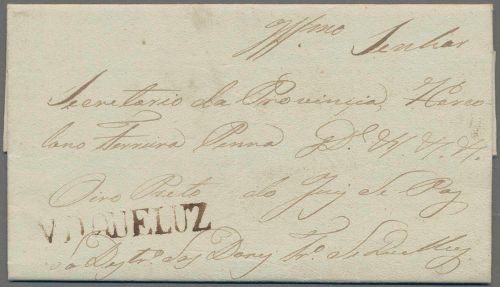 Illmo Senhor
Secretario da Provincia, Hercu
lano Ferreira Penna gDe. &. &. &.
Oiro Preto do Juiz de Paz
VA QUELUZ
do Destro. de Queluz